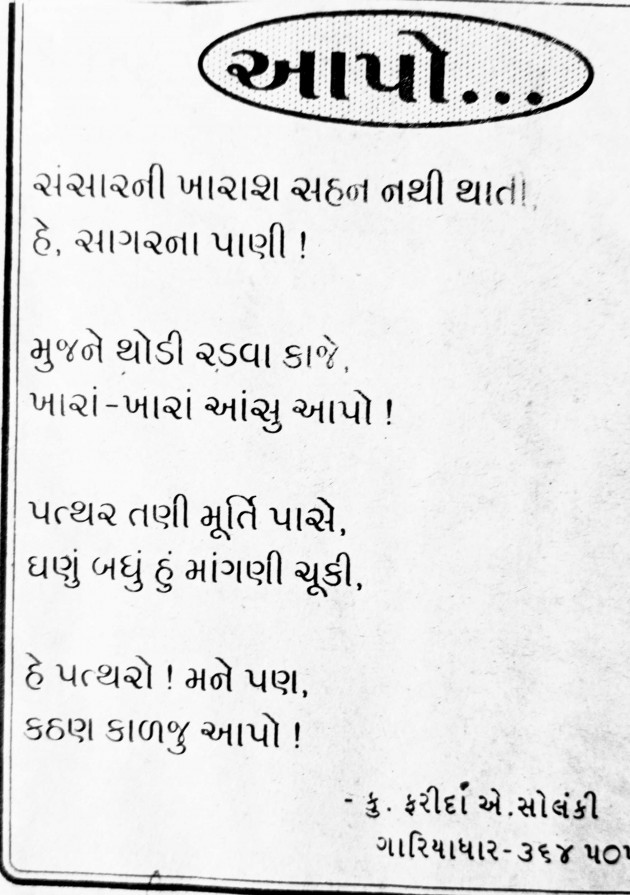 આપો...
સંસારની ખારાશ સહન નથી થાતી,
હે, સાગરના પાણી !
મુજને થોડી રડવા કાજે,
ખારાં-ખારાં આંસુ આપો !
પત્થર તણી મૂર્તિ પાસે,
ઘણું બધું હું માંગણી ચૂકી,
હે પત્થરો ! મને પણ,
કઠણ કાળજુ આપો !
- કુ. ફરીદા એ.સોલંકી
ગારિયાધાર-૩૬૪ ૫૦૫